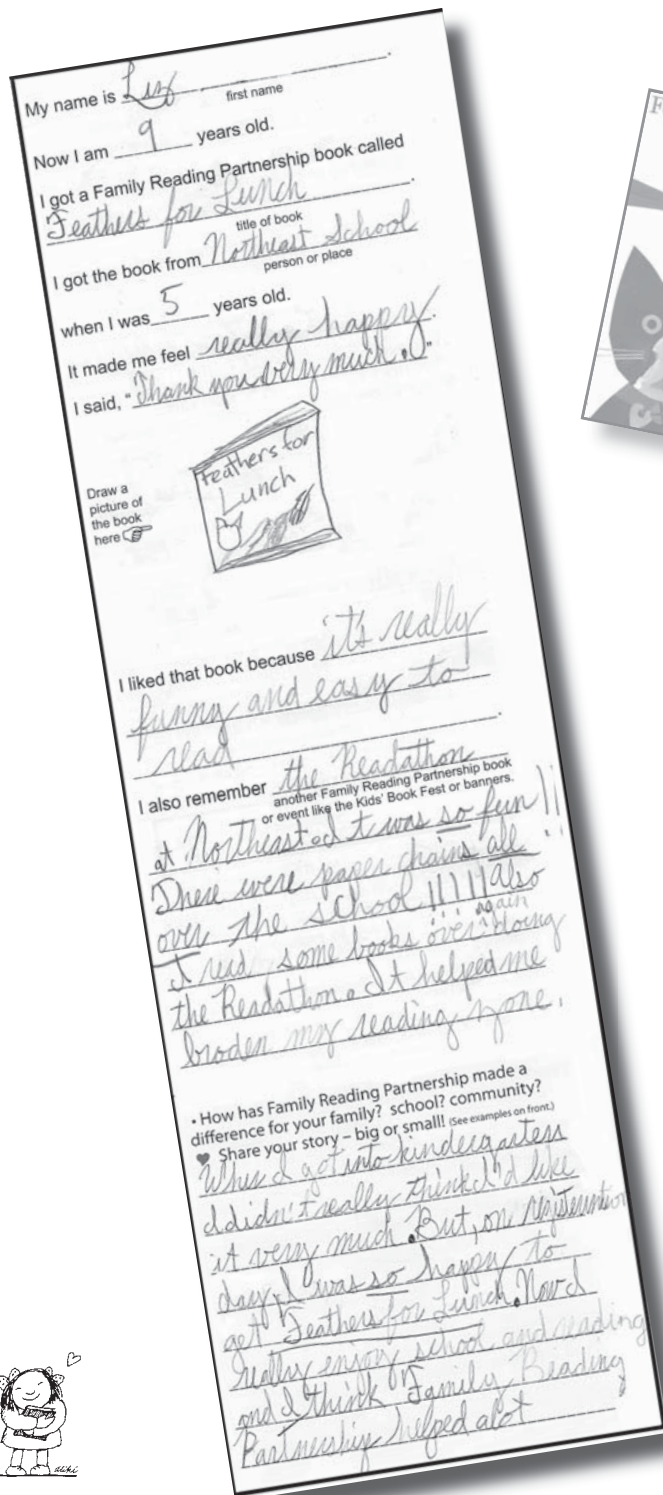 My name is Liz.
first name
Now I am 9 years old.
I got a Family Reading Partnership book called
Feathers for Lunch.
title of book
I got the book from Northeast School
person or place
when I was 5 years old.
It made me feel really happy.
I said, "Thank you very much."
Feathers for
Lunch
Draw a
picture of
the book
here
I liked that book because it's really
funny and easy to
read.
I also remember the Readathon
another Family Reading Partnership book
or event like the Kids' Book Fest or banners.
at Northeast. It was so fun!!
There were paper chains all
over the school!!!!! Also
I read some books over again doing
the Readathon. It helped me
broden my reading zone.
• How has Family Reading Partnership made a
difference for your family? school? community?
♥ Share your story – big or small! (See examples on front.)
When I got into kindergarten
I didn't really think I'd like
it very much. But, on
day, I was so happy to
get Feathers for Lunch. Now I
really enjoy school and reading
and I think Family Reading
Partnership helped alot.
aliki
F